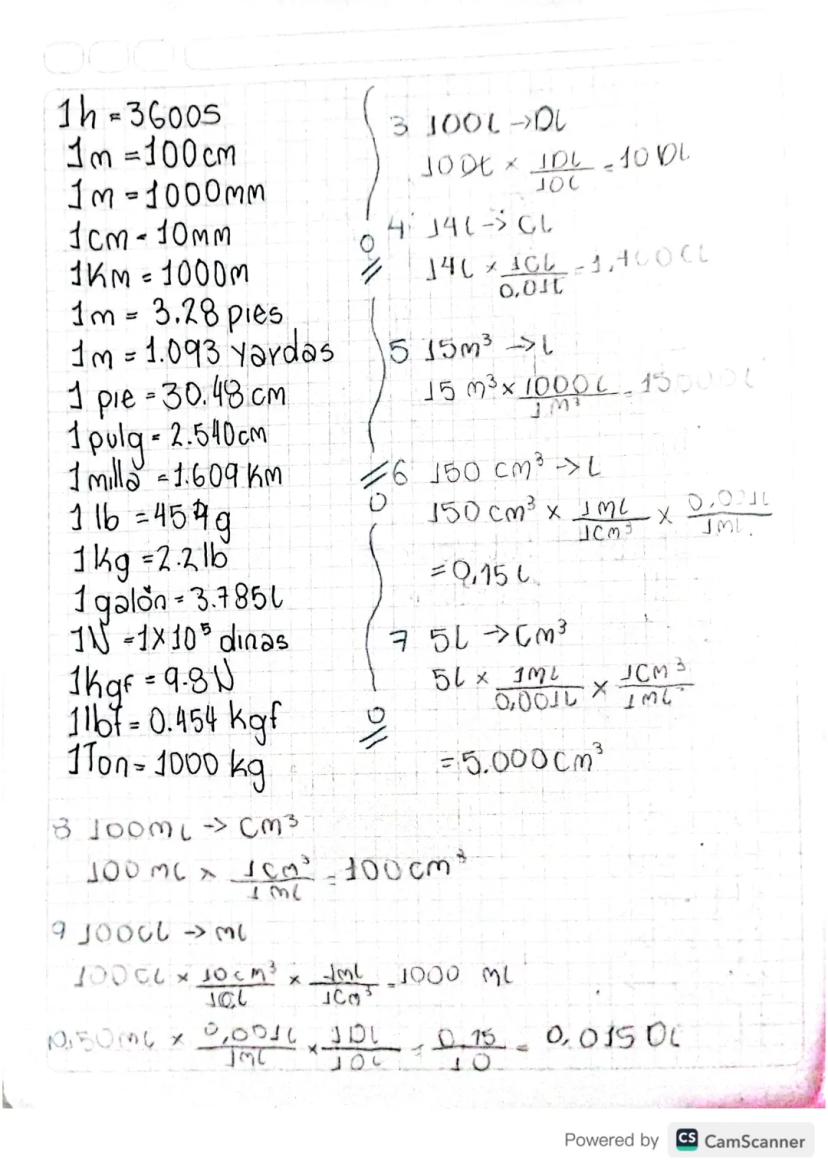 1h = 3600s
1m = 100cm
1m = 1000mm
1cm = 10mm
1Km = 1000m
1m = 3.28 pies
1m = 1.093 yardas
1 pie = 30.48 cm
1 pulg = 2.540cm
1 milla = 1.609 Km
1 lb = 454g
1kg = 2.2 lb
1 galón = 3.785L
1N = 1x10⁵ dinas
1Kgf = 9.8N
1lbf = 0.454 kgf
1Ton = 1000 kg
3 100L → DL
100L × 1DL/10L = 10 DL
4 14L → CL
14L × 1CL/0,01L = 1,400 CL
5 15m³ → L
15 m³ × 1000L/1m³ = 15000L
6 150 cm³ → L
150 cm³ × 1mL/1cm³ × 0,001L/1mL
= 0,15 L
7 5L → Cm³
5L × 1mL/0,001L × 1cm³/1mL
= 5.000 Cm³
8 100mL → cm³
100 mL × 1cm³/1mL = 100 cm³
9 100CL → mL
100CL × 10cm³/1CL × 1mL/1cm³ = 1000 mL
10.50mL × 0,001L/1mL × 1DL/10L = 0.15/10 = 0,015 DL
Powered by CS CamScanner